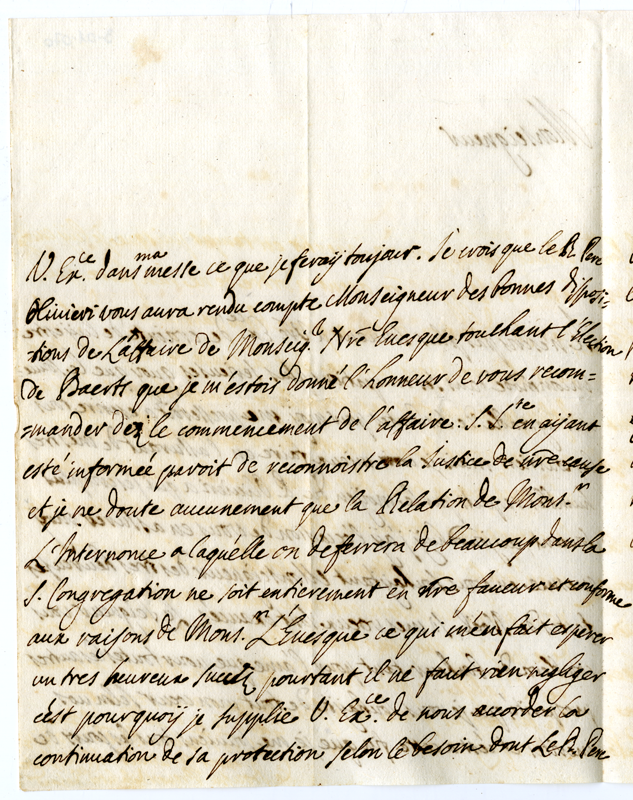 V. Ex.ce dans ma messe ce que je feray toujour. Je crois que le R. Pere
Olivieri vous aura rendu compte Monseigneur des bonnes disposi=
=tions de L'affaire de Monseig.r Nr̃e Euesque touchant l'Election
de Baerts que je m'estois donné l'honneur de vous recom=
=mander dez le commencement de l'affaire. S. S.te en aijant
esté informeé paroit de reconnoistre la Justice de nr̃e cause
et je ne doute aucunement que la Relation de Mons.r
L'Internonce a laquélle on deferrera de beaucoup dans la
S. Congregation ne soit entierement en nr̃e faueur et conforme
aux raisons de Mons.r L'Euesque ce qui m'en fait esperer
un tres heureux succez pourtant il ne faut rien negliger
c'est pourquoij je supplie V. Ex.ce de nous accorder la
continuation de sa protection selon le besoin dont Le R. Pere
Monseigneur